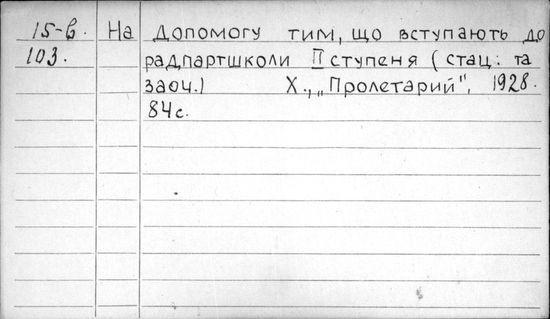 15-в. На допомогу тим, що вступають до
103. радпартшколи II ступеня (стац. та
заоч.) Х., „Пролетарий", 1928.
84с.